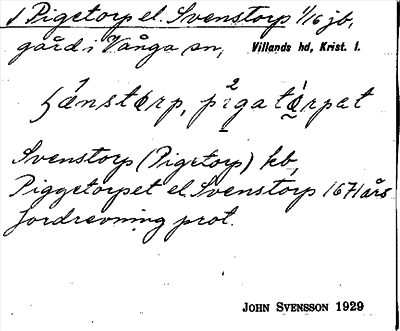 Pigetorp el. Svenstorp 1/16 jb,
gård i Vånga sn, Villands hd, Krist. l.
pigatǫrpet
Svenstorp (Pigetorp) kb,
Piggetorpet el. Svenstorp 1671 års
Jordrevning prot.
JOHN SVENSSON 1929